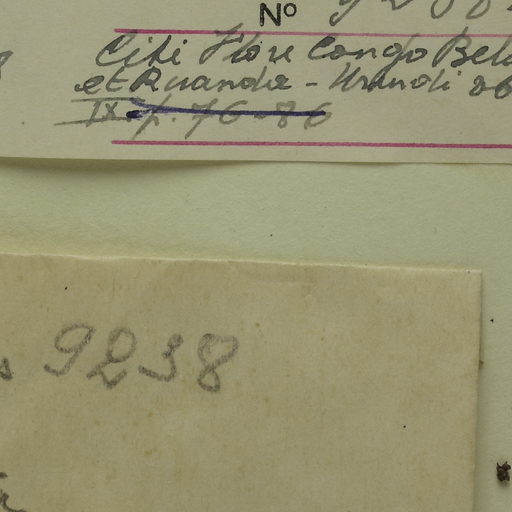 Nº
Cité Flore Congo Bel
et Ruanda - Urundi
IX. p. 76-86
9238